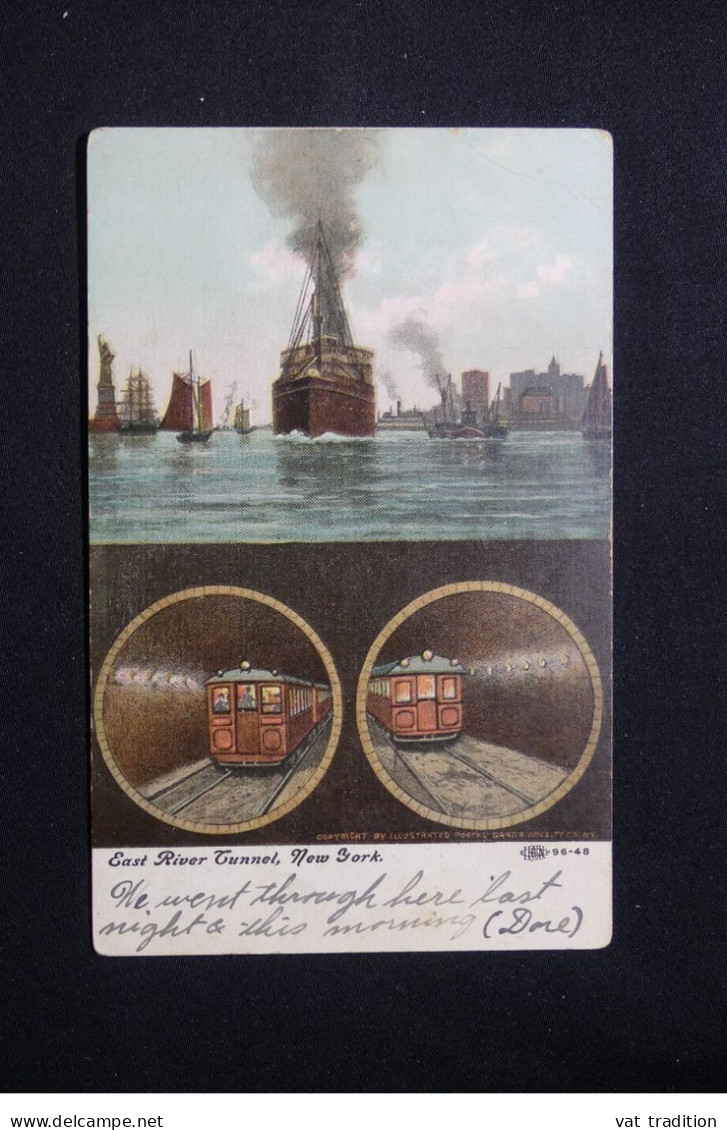 COPYRIGHT BY ILLUSTRATED POSTAL CARD & NOVELTY CO. N.Y.
East River Tunnel, New York.
96-48
We went through here last
night & this morning (Dore)
vat tradition
Delcampe.net